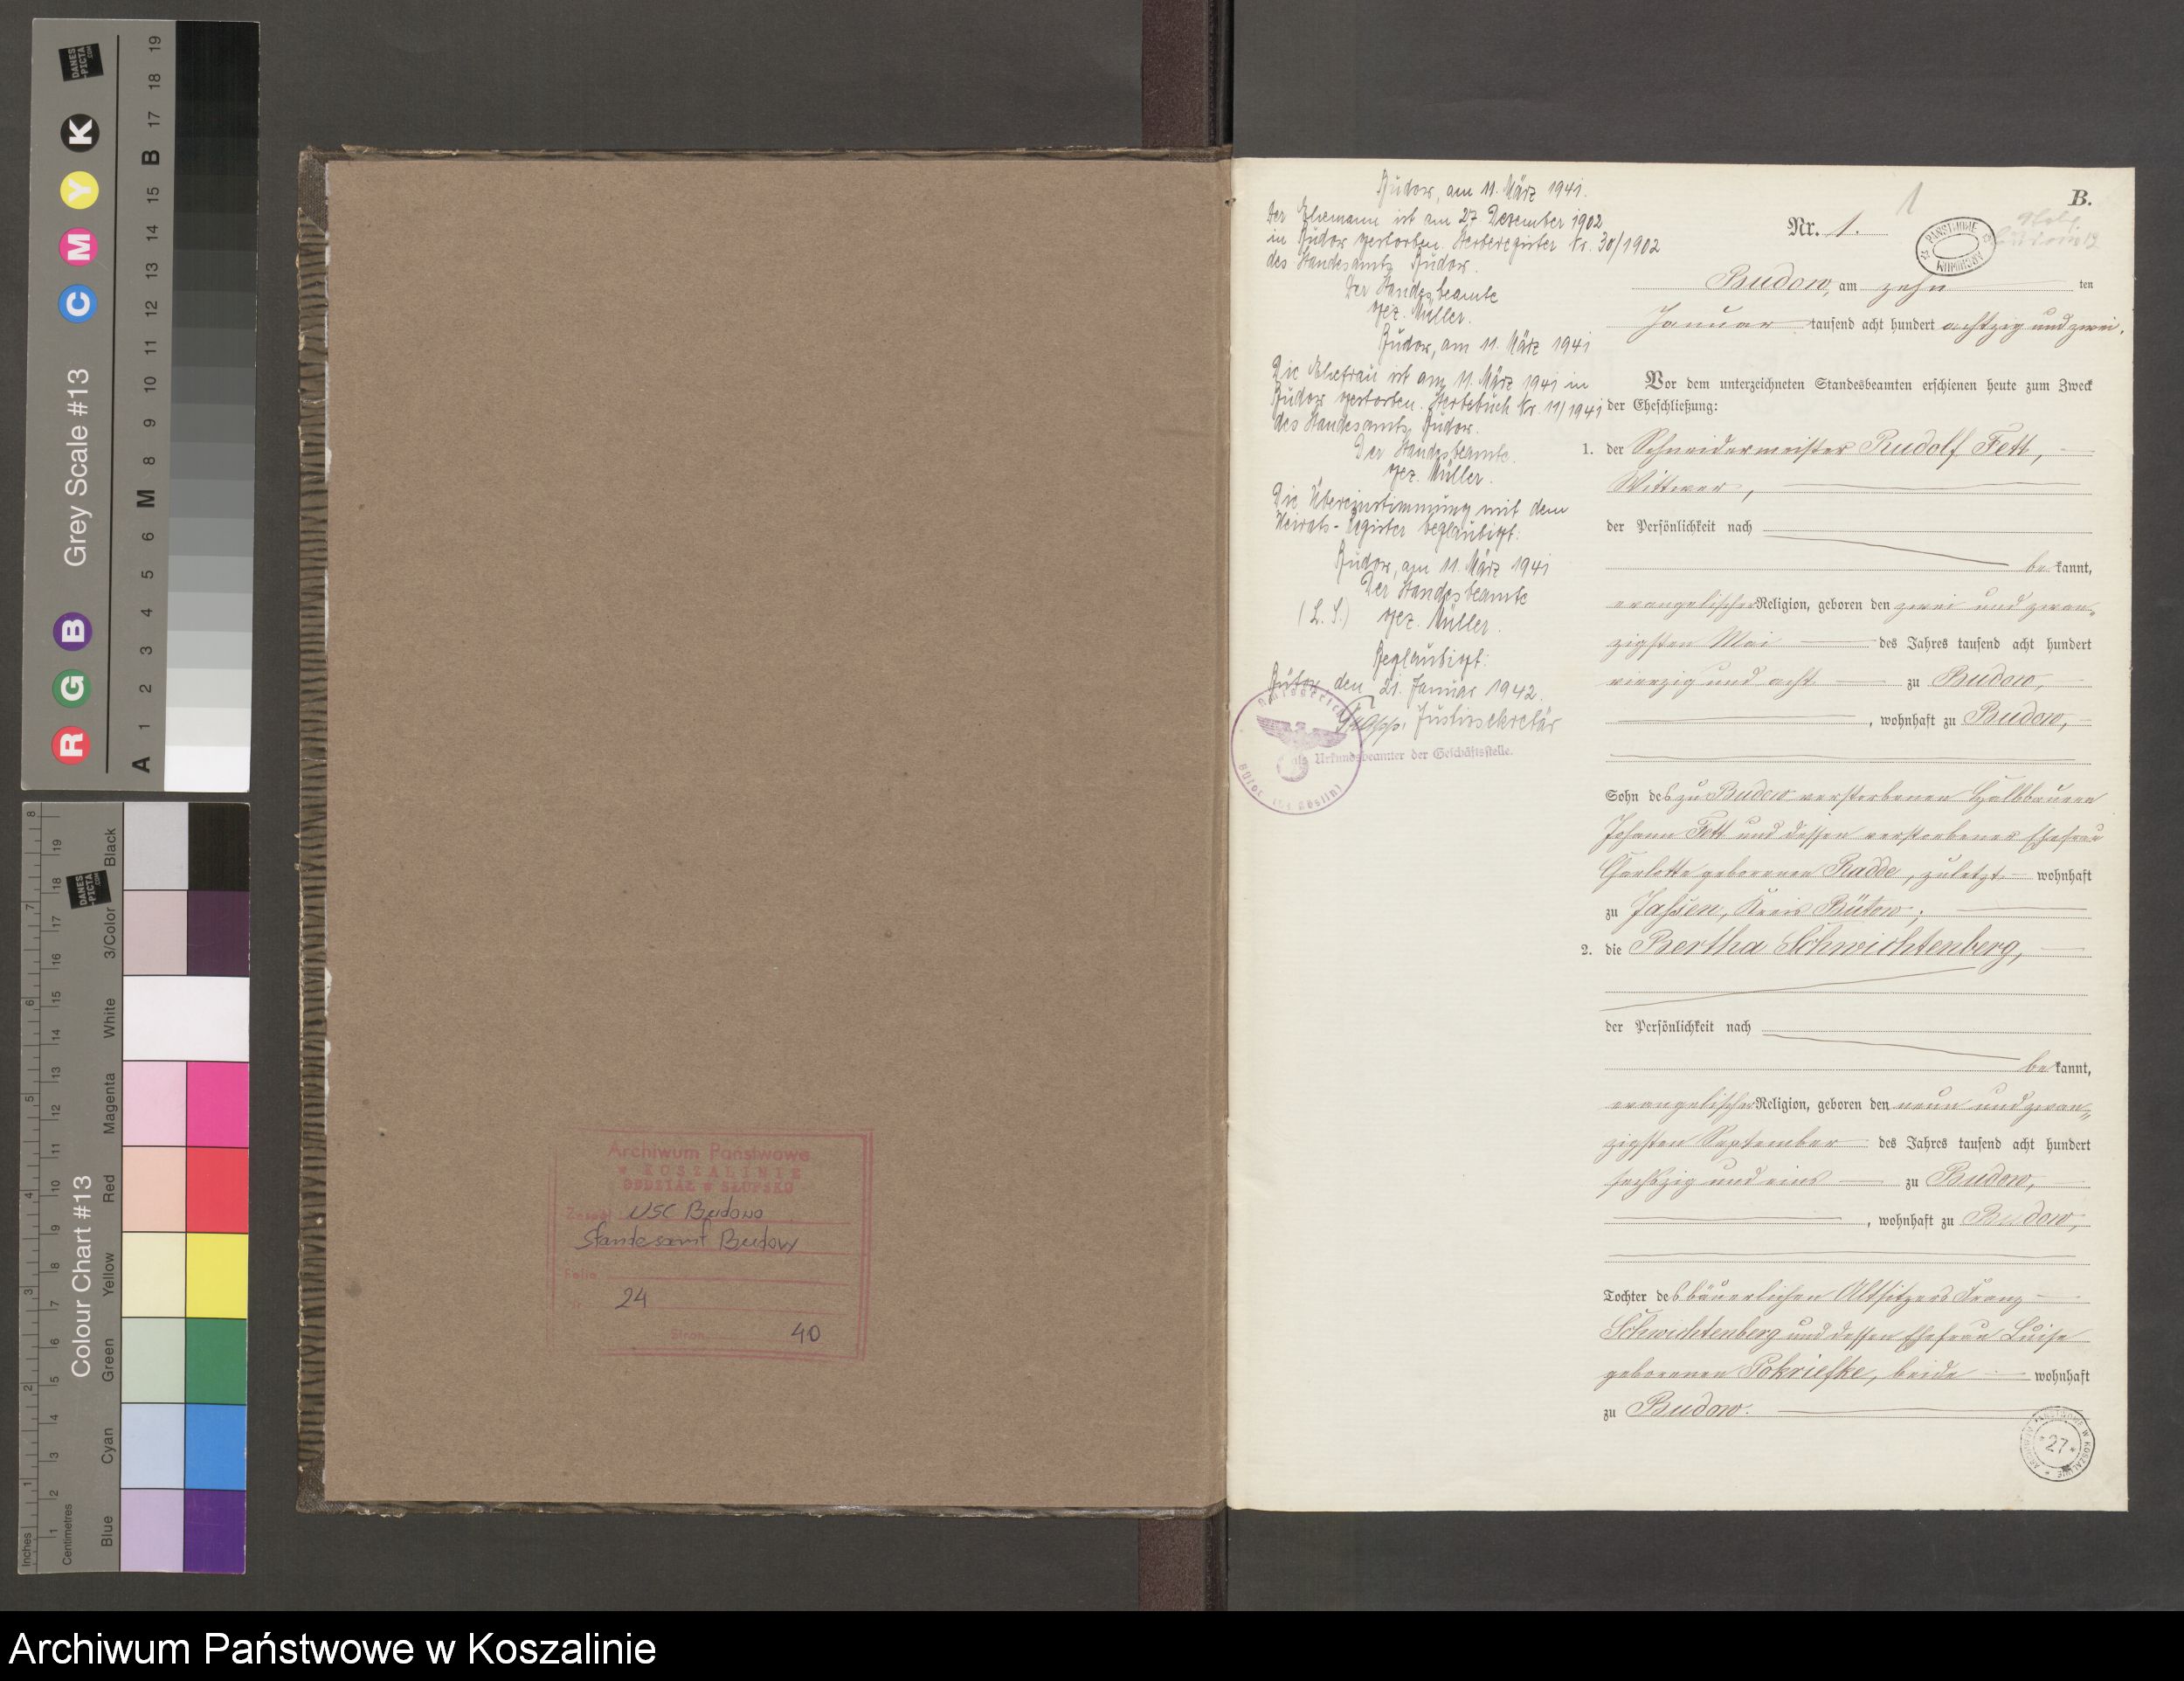 DANES
-PICTA
.COM
Grey Scale #13
R G B C M Y K
A 1 2 3 4 5 6 M 8 9 10 11 12 13 14 15 B 17 18 19
Colour Chart #13
Blue Cyan Green Yellow Red Magenta White 3/Color Black
Inches
Centimetres
DANES
-PICTA
.COM
Archiwum Państwowe
w KOSZALINIE
ODDZIAŁ w SŁUPSKU
Zespół USC Budowo
Standesamt Budow
Folio
Nr 24
Stron 40
Budow, am 11. März 1941.
Der Ehemann ist am 27. Dezember 1902
in Budow verstorben. Sterberegister Nr. 30/1902
des Standesamts Budow.
Der Standesbeamte
gez. Müller.
Budow, am 11. März 1941
Die Ehefrau ist am 11. März 1941 in
Budow verstorben. Sterbebuch Nr. 11/1941
des Standesamts Budow.
Der Standesbeamte.
gez. Müller.
Die Übereinstimmung mit dem
Heirats-Register beglaubigt:
Budow, am 11. März 1941
Der Standesbeamte
(L. S.) gez. Müller.
Beglaubigt:
Bütow den 21. Januar 1942.
Justizsekretär
als Urkundsbeamter der Geschäftsstelle.
1
B.
Nr. 1.
PAŃSTWOWE
ARCHIWUM
Budow, am zehn ten
Januar tausend acht hundert achtzig und zwei.
Vor dem unterzeichneten Standesbeamten erschienen heute zum Zweck
der Eheschließung:
1. der Schneidermeister Rudolf Fett,
Wittwer,
der Persönlichkeit nach
be kannt,
evangelischer Religion, geboren den zwei und zwan-
zigsten Mai des Jahres tausend acht hundert
vierzig und acht zu Budow,
, wohnhaft zu Budow,
Sohn des zu Budow verstorbenen Halbbauern
Johann Fett und dessen verstorbener Ehefrau
Charlotte geborenen Radde, zuletzt wohnhaft
zu Jassen, Kreis Bütow;
2. die Bertha Schwichtenberg,
der Persönlichkeit nach
be kannt,
evangelischer Religion, geboren den neun und zwan-
zigsten September des Jahres tausend acht hundert
sechszig und eins zu Budow,
, wohnhaft zu Budow,
Tochter des bäuerlichen Altsitzers Franz
Schwichtenberg und dessen Ehefrau Luise
geborenen Pokriefke, beide wohnhaft
zu Budow.
ARCHIWUM PAŃSTWOWE W KOSZALINIE
* 27 *
Archiwum Państwowe w Koszalinie